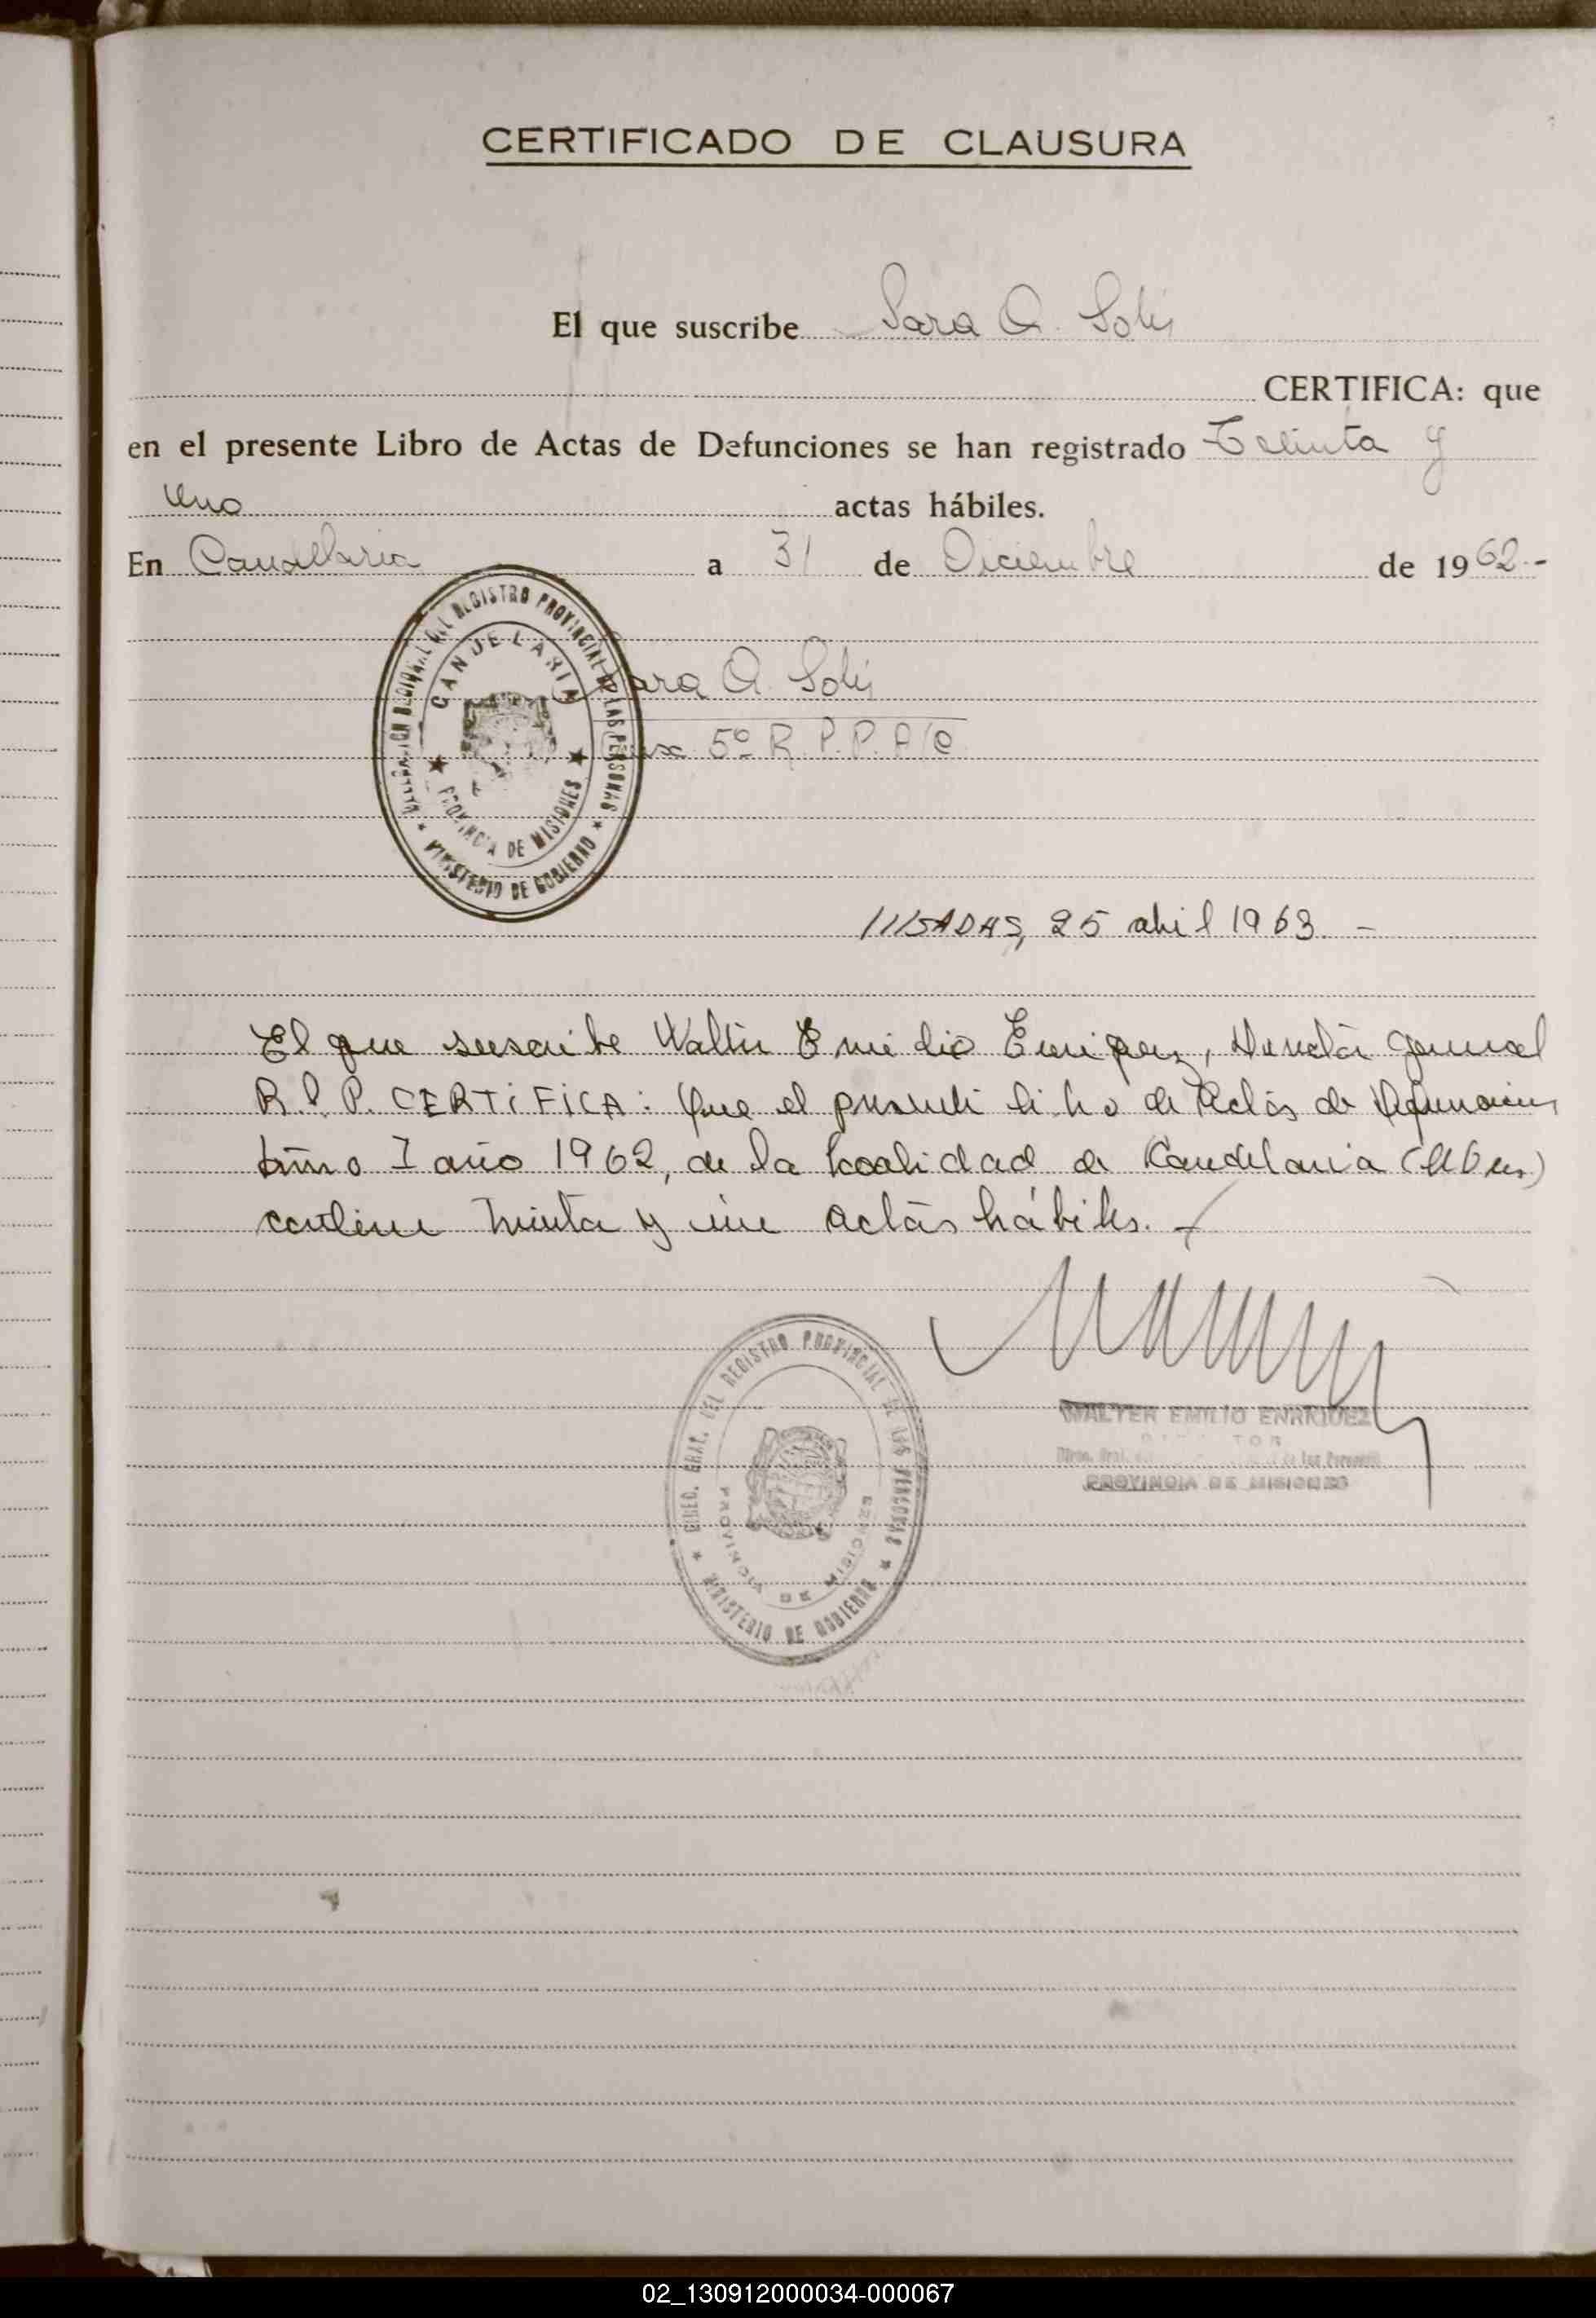 CERTIFICADO DE CLAUSURA
El que suscribe Sara A. Solis
CERTIFICA: que
en el presente Libro de Actas de Defunciones se han registrado Treinta y
uno actas hábiles.
En Candelaria a 31 de Diciembre de 1962.-
Sara A. Solis
Aux 5º R. P. P. A/C
DELEGACION REGIONAL DEL REGISTRO PROVINCIAL DE LAS PERSONAS
CANDELARIA
PROVINCIA DE MISIONES
MINISTERIO DE GOBIERNO
///SADAS, 25 abril 1963.-
El que suscribe Walter Emilio Enriquez, Director General
R. P. P. CERTIFICA: Que el presente libro de Actas de Defunciones
tomo I año 1962, de la localidad de Candelaria (Mnes)
contiene treinta y una actas hábiles.-
WALTER EMILIO ENRIQUEZ
DIRECTOR
de las Personas
PROVINCIA DE MISIONES
DIREC. GRAL. DEL REGISTRO PROVINCIAL DE LAS PERSONAS
PROVINCIA DE MISIONES
MINISTERIO DE GOBIERNO
02_130912000034-000067